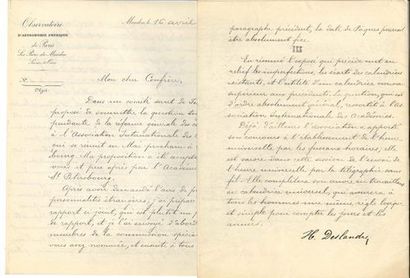 Observatoire
D'ASTRONOMIE PHYSIQUE
de Paris
Le Parc de Meudon
Seine & Oise
Meudon le 16 avril
N°
Objet
Mon cher Confrère,
Dans un comité secret de
proposé de soumettre la question
pendante de la réforme
à l'Association Internationale des
qui se réunit en Mai prochain à
bourg. Ma proposition a été
et peu après par l'Académie
St Petersbourg.
Après avoir demandé l'avis de
personnalités étrangères, j'ai préparé
rapport ci-joint, qui est plutôt un
de rapport, et je l'ai envoyé d'abord
membres de la commission spéciale
nommée, et ensuite à tous
paragraphe précédent, la date de Pâques pourrait
être absolument fixe.
III
En résumé l'exposé qui précède met en
relief les imperfections, les écarts des calendriers
existants, et l'utilité d'un calendrier
supérieur aux précédents. La question, qui est
d'ordre absolument général, ressortit à l'As-
sociation internationale des Académies.
Déjà d'ailleurs l'association a apporté
son concours à l'établissement de l'heure
universelle par les fuseaux horaires, elle
est saisie dans cette session de l'envoi de
l'heure universelle par la télégraphie sans
fil. Elle complètera son œuvre en travaillant
au calendrier universel, qui assurera à
tous les hommes une même règle
et simple pour compter les jours et les
années.
H. Deslandres